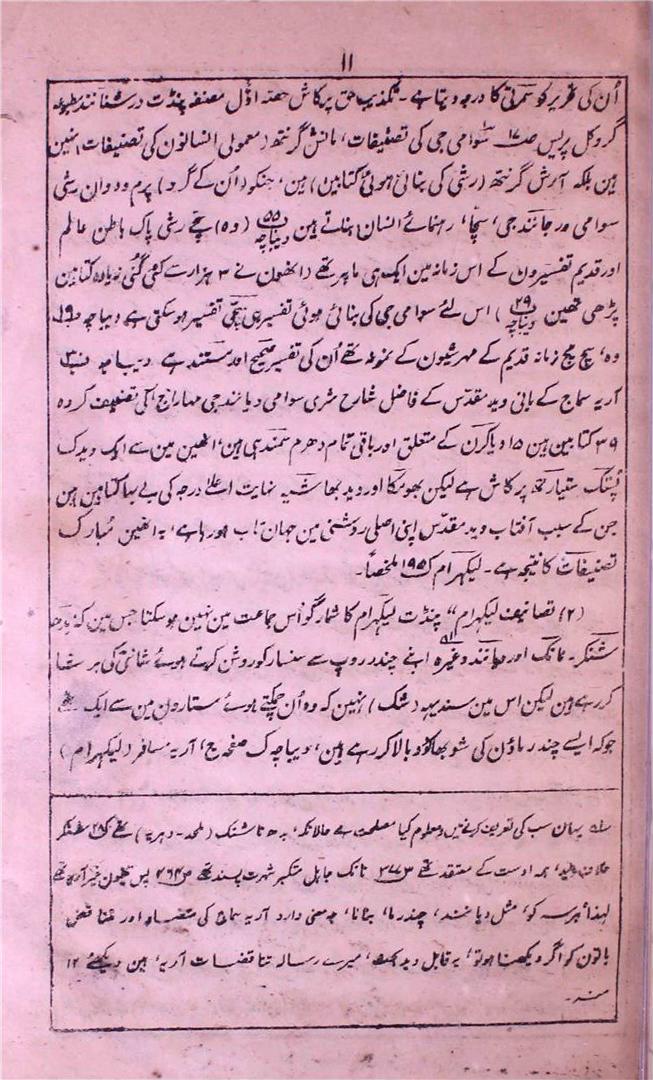 ۱۱
اُن کی تحریر کو سمرتی کا درجہ دیتا ہے۔ تکذیب حق پرکاش حصہ اوّل مصنفہ پنڈت درشنانند مطبوعہ
گروکل پریس ص۱۷ سوامی جی کی تصنیفات، مانش گرنتھ (معمولی انسانون کی تصنیفات) نہین
ہین بلکہ آرش گرنتھ (رشی کی بنائی ہوئی کتابین) ہین، جنکو (اُن کے گرو) پرم ودوان رشی
سوامی ورجانند جی، سچا، رہنمائے انسان بناتے ہین دیباچہ ۵۵ (وہ) سچے رشی پاک باطن عالم
اور قدیم تفسیرون کے اس زمانہ مین ایک ہی ماہر تھے (انھون نے ۳ ہزار سے کئی گنی زیادہ کتابین
پڑھی تھین دیباچہ ۲۹) اس لئے سوامی جی کی بنائی ہوئی تفسیر ہی سچی تفسیر ہو سکتی ہے دیباچہ ۱۹
وہ، سچ مچ زمانہ قدیم کے مہرشیون کے نمونہ تھے اُن کی تفسیر صحیح اور مستند ہے دیباچہ
آریہ سماج کے بانی وید مقدّس کے فاضل شارح شری سوامی دیانند جی مہاراج کی تصنیف کردہ
۳۹ کتابین ہین ۱۵ ویاکرن کے متعلق اور باقی تمام دھرم سمبندھی ہین، انھین مین سے ایک ویدک
پُستک ستیارتھ پرکاش ہے لیکن بھومکا اور وید بھاشیہ نہایت اعلےٰ درجہ کی بے بہا کتابین ہین
جن کے سبب آفتاب وید مقدّس اپنی اصلی روشنی مین جہان تاب ہو رہا ہے، یہ انھین مُبارک
تصنیفات کا نتیجہ ہے۔ لیکہرام ک ۱۹۵ ملخصاً۔
(۲) تصانیف لیکہرام" پنڈت لیکہرام کا شمار گو اُس جماعت مین نہین ہو سکتا جس مین کہ بدھ
شنکر۔ نانک اور دیانند وغیرہ اپنے چندر روپ سے سنسار کو روشن کرتے ہوئے شانتی کی برشا
کر رہے ہین لیکن اس مین سندیہہ (شک) نہین کہ وہ اُن چمکتے ہوئے ستارون مین سے ایک تھے
جو کہ ایسے چندرماؤن کی شوبھا کو دوبالا کر رہے ہین، دیباچہ ک صفحہ ج، آریہ مسافر (لیکہرام)
سلہ یہان سب کی تعریف کرنے مین معلوم کیا مصلحت ہے حالانکہ، بدھ ناستک (ملحد۔ دہریہ) تھے شنکر
ہمہ اوست کے معتقد تھے ص۳۷۷ نانک جاہل متکبر شہرت پسند تھے ص۴۶۴ پس
لہذا ہر سہ کو، مثل دیانند، چندرما، بتانا، چہ معنی دارد آریہ سماج کی متضاد اور متناقض
باتون کو اگر دیکھنا ہو تو، یہ قابل دید بحث، میرے رسالہ تناقضات آریہ، مین دیکھئے ۱۲
منہ۔